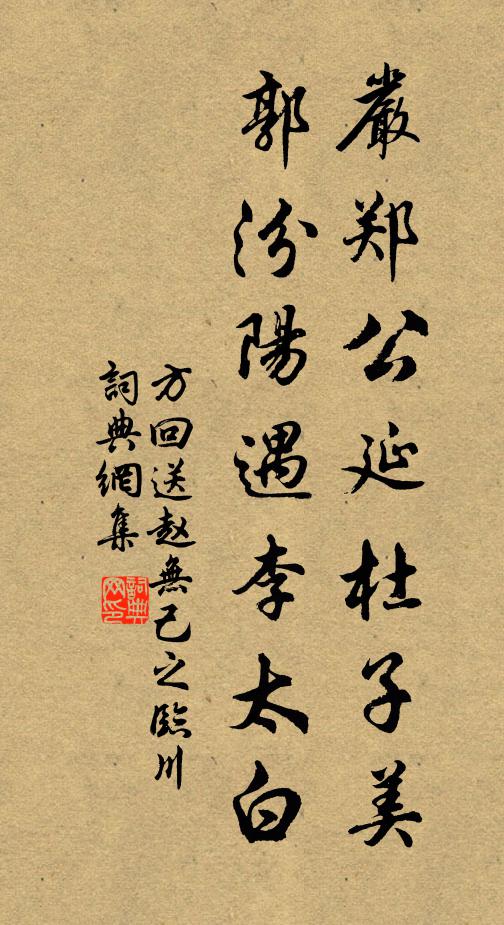 嚴郑公延杜子美
郭汾陽遇李太白
方回送赵無己之臨川
詞典網集
詞典網印